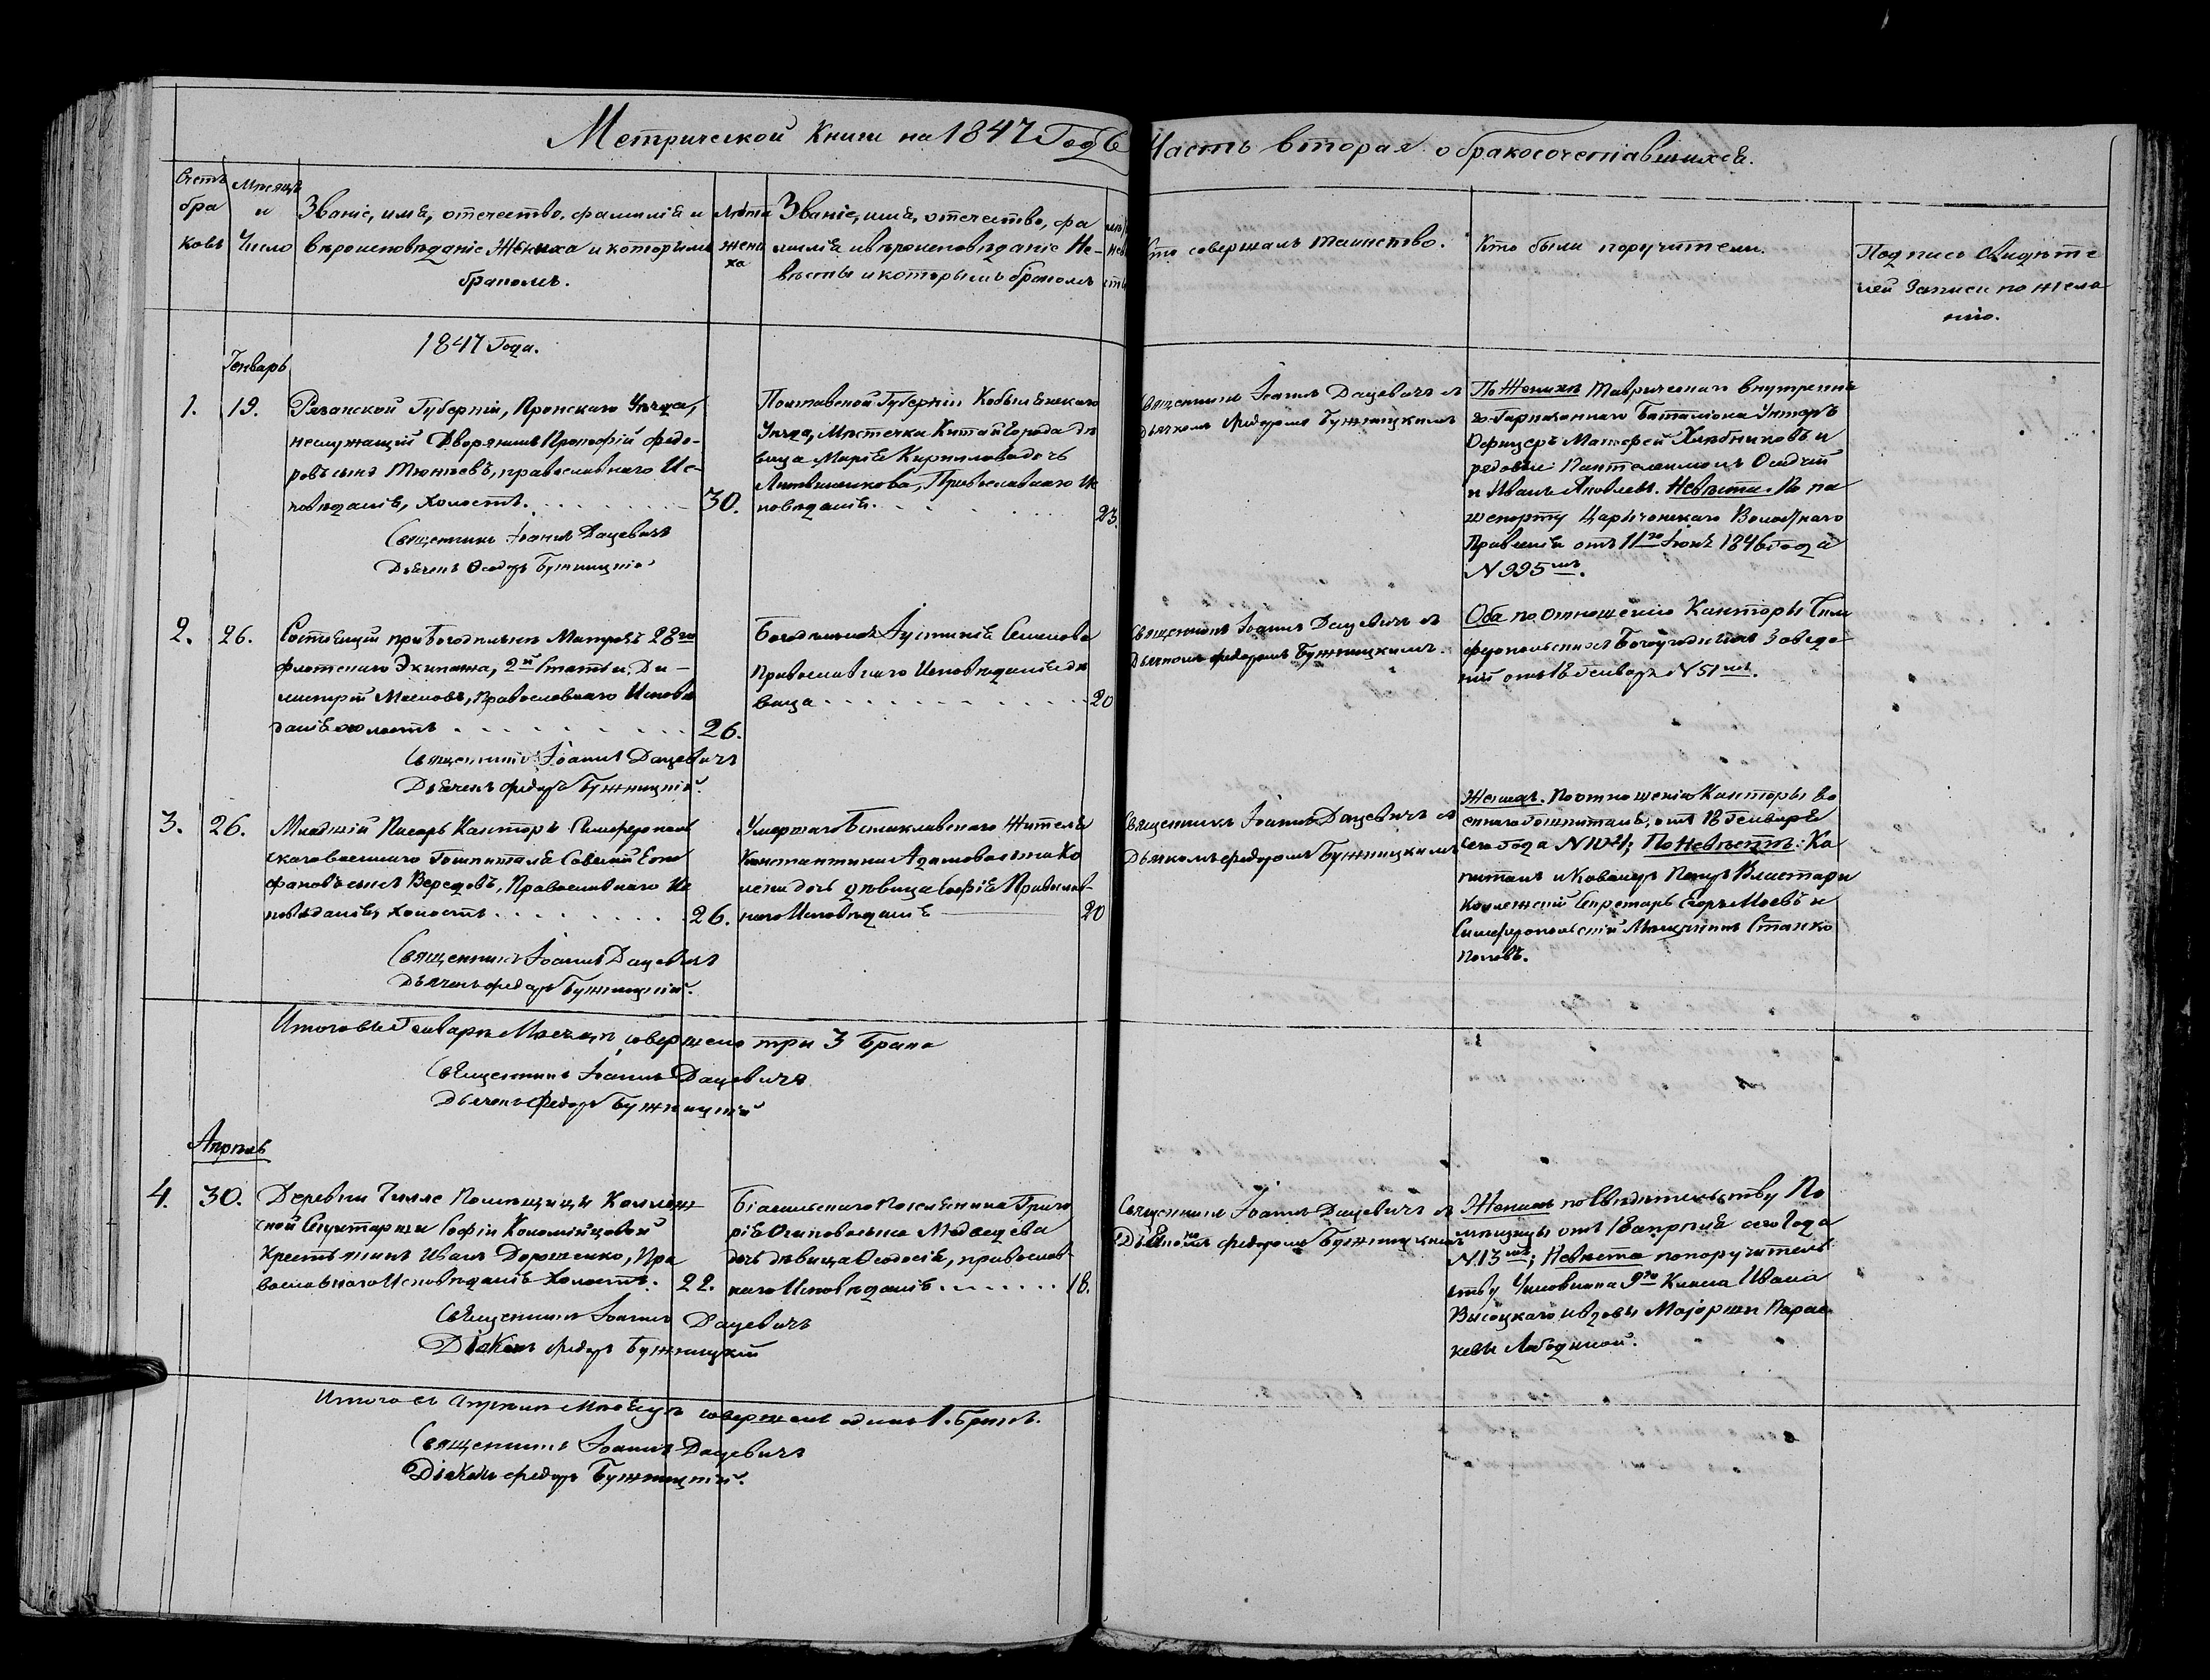 Метрической Книги на 1847 Годъ Часть вторая о бракосочетавшихся.
Счетъ
бра
ковъ
Мѣсяцъ
и
Число
Званіе, имя, отечество, фамилія и
вѣроисповѣданіе Жениха и которымъ
бракомъ.
Лѣта
жени
ха
Званіе, имя, отечество, фа
милія и вѣроисповѣданіе Не-
вѣсты и которымъ бракомъ
Кто совершалъ таинство.
Кто были поручители.
Подпись Свидѣте
лей Записи по жела
нію.
1847 Года.
Генварь
1. 19.
Рязанской Губерніи, Пронскаго Уѣзда,
неслужащій Дворянинъ Прокофій Федо-
ровъ сынъ Тютчевъ, православнаго Ис-
повѣданія, холостъ.
30.
Священникъ Іоаннъ Дацевичъ
Дьячекъ Ѳеодоръ Бужницкій
Полтавской Губерніи Кобылякскаго
Уѣзда, Мѣстечка Китай Города дѣ
вица Марія Кириллова дочь
Литвиненкова, Православнаго Ис
повѣданія.
23.
Священникъ Іоаннъ Дацевичъ съ
Дьячкомъ Федоромъ Бужницкимъ
По Женихѣ Таврическаго внутрення
го Гарнизоннаго Баталіона Унтеръ
Офицеръ Матфей Хлѣбниковъ и
рядовые: Пантелеимонъ Осадчій
и Иванъ Яковлевъ. Невѣста. По па
шпорту Царичанскаго Волостнаго
Правленія отъ 11го Іюня 1846 года
N 995мъ.
2. 26.
Состоящій при Богадѣльнѣ Матрозъ 28го
флотскаго Экипажа, 2й Статьи, Ди-
митрій Масловъ, Православнаго Исповѣ
данія холостъ
26.
Священникъ Іоаннъ Дацевичъ
Дьячекъ Федоръ Бужницкій.
Богадѣльная Іустинія Семенова
Православнаго Исповѣданія дѣ
вица
20
Священникъ Іоаннъ Дацевичъ съ
Дьячкомъ Федоромъ Бужницкимъ.
Оба по Отношенію Канторы Сим
феропольскихъ Богоугодныхъ Заведе
ній отъ 18 Генваря N 51мъ.
3. 26.
Младшій Писарь Канторы Симферополь
скаго военнаго Гошпиталя Савелій
сынъ Вередовъ, Православнаго Ис
повѣданія, холостъ
26.
Священникъ Іоаннъ Дацевичъ
Дьячекъ Федоръ Бужницкій.
Умершаго Балаклавскаго Жителя
Константина
дочь дѣвица Софія Православ-
наго Исповѣданія
20
Священникъ Іоаннъ Дацевичъ съ
Дьячкомъ Федоромъ Бужницкимъ
Женихъ. По отношенію Канторы во
еннаго Гошпиталя, отъ 18 Генваря
сего Года; По Невѣстѣ: Ка
питанъ и Кавалеръ Петръ Властари
Коллежскій Секретарь Егоръ Моевъ и
Симферопольскій Мѣщанинъ Станко
Поповъ.
Итого въ Генварѣ Мѣсяцѣ совершено три 3 Брака
Священникъ Іоаннъ Дацевичъ
Дьячекъ Федоръ Бужницкій
Апрѣль
4. 30.
Деревни Чилле Помѣщицы Коллеж
ской Секретарши Софіи Кономійцовой
Крестьянинъ Иванъ Дорошенко, Пра
вославнаго Исповѣданія Холостъ.
22.
Священникъ Іоаннъ Дацевичъ
Діаконъ Федоръ Бужницкій
Біасальскаго Поселянина Григо
рія Осипова сына Медведева
дочь дѣвица Ѳеодосія, православ-
наго Исповѣданія
18.
Священникъ Іоаннъ Дацевичъ съ
Діакономъ Федоромъ Бужницкимъ
Женихъ по Свидѣтельству По
мѣщицы отъ 18 апрѣля сего Года
N. 13мъ; Невѣста по поручитель
ству Чиновника 9го Класса Ивана
Высоцкаго и вдовы Маіорши Парас
кевы Лободиной.
Итого въ Апрѣлѣ Мѣсяцѣ совершенъ одинъ 1. Бракъ.
Священникъ Іоаннъ Дацевичъ
Діаконъ Федоръ Бужницкій.